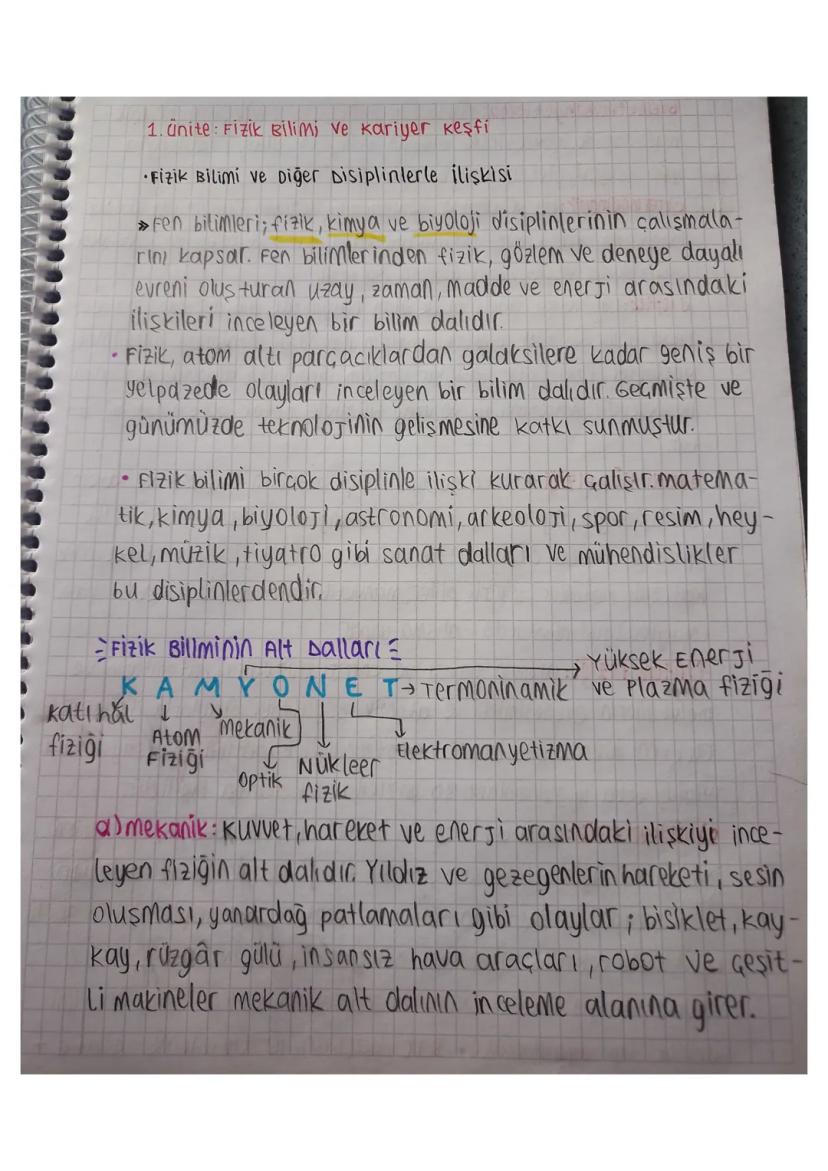 1. ünite: Fizik Bilimi ve Kariyer Keşfi
•Fizik Bilimi ve Diğer Disiplinlerle İlişkisi
» Fen bilimleri; fizik, kimya ve biyoloji disiplinlerinin çalışmala-
rını kapsar. Fen bilimlerinden fizik, gözlem ve deneye dayalı
evreni oluşturan uzay, zaman, madde ve enerji arasındaki
ilişkileri inceleyen bir bilim dalıdır.
• Fizik, atom altı parçacıklardan galaksilere kadar geniş bir
yelpazede olayları inceleyen bir bilim dalıdır. Geçmişte ve
günümüzde teknolojinin gelişmesine katkı sunmuştur.
• Fizik bilimi birçok disiplinle ilişki kurarak çalışır. matema-
tik, kimya, biyoloji, astronomi, arkeoloji, spor, resim, hey-
kel, müzik, tiyatro gibi sanat dalları ve mühendislikler
bu disiplinlerdendir.
Fizik Biliminin Alt Dalları
→ Yüksek Enerji
K A M Y O N E T → Termoninamik ve Plazma fiziği
Katıhâl
fiziği
Atom
Fiziği
mekanik
Optik
Nükleer
fizik
Elektromanyetizma
a) mekanik: Kuvvet, hareket ve enerji arasındaki ilişkiyi ince-
leyen fiziğin alt dalıdır. Yıldız ve gezegenlerin hareketi, sesin
oluşması, yanardağ patlamaları gibi olaylar; bisiklet, kay-
kay, rüzgâr gülü, insansız hava araçları, robot ve çeşit-
li makineler mekanik alt dalının inceleme alanına girer.